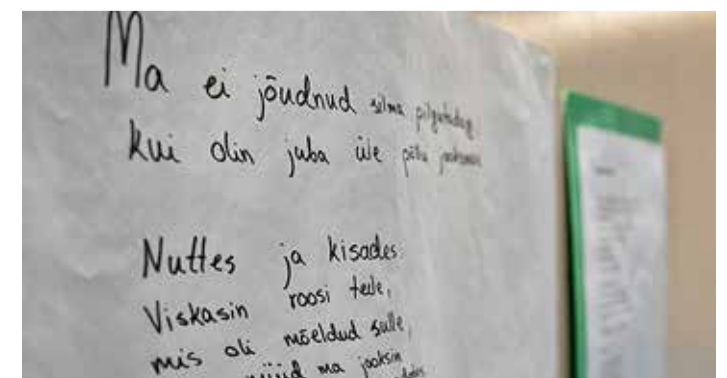 Ma ei jõudnud silma pilgutada,
kui olin juba üle põllu jooksmas
Nuttes ja kisades
Viskasin roosi teile,
mis oli mõeldud sulle,
nüüd ma jooksin